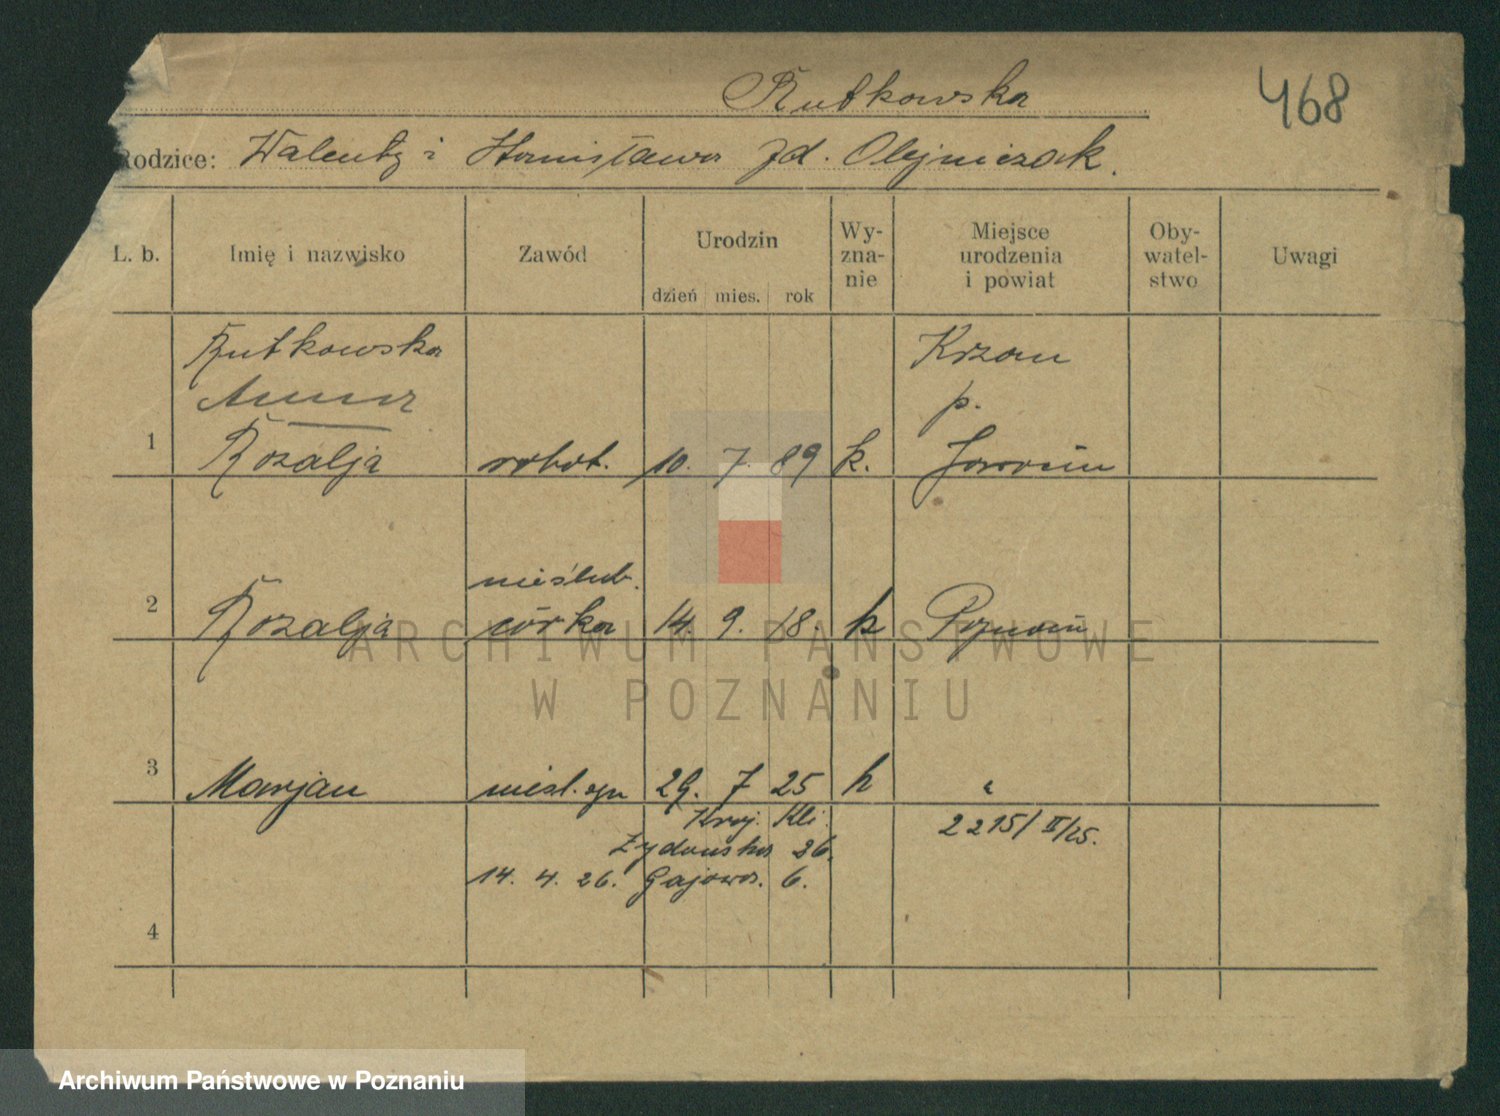 Rutkowska
468
Rodzice: Walenty i Stanisława zd. Olejniczak.
L. b. Imię i nazwisko Zawód Urodzin dzień mies. rok Wy-zna-nie Miejsce urodzenia i powiat Oby-watel-stwo Uwagi
Rutkowska Krzan
Anna p.
1 Rozalja robot. 10. 7. 89 k. Jarocin
nieślub.
2 Rozalja córka 14. 9. 18. k Poznań
3 Marjan nieśl. syn 29. 7 25 k "
2215/II/25.
Żydowska 26.
14. 4. 26. Gajowa. 6.
4
ARCHIWUM PAŃSTWOWE
W POZNANIU
Archiwum Państwowe w Poznaniu